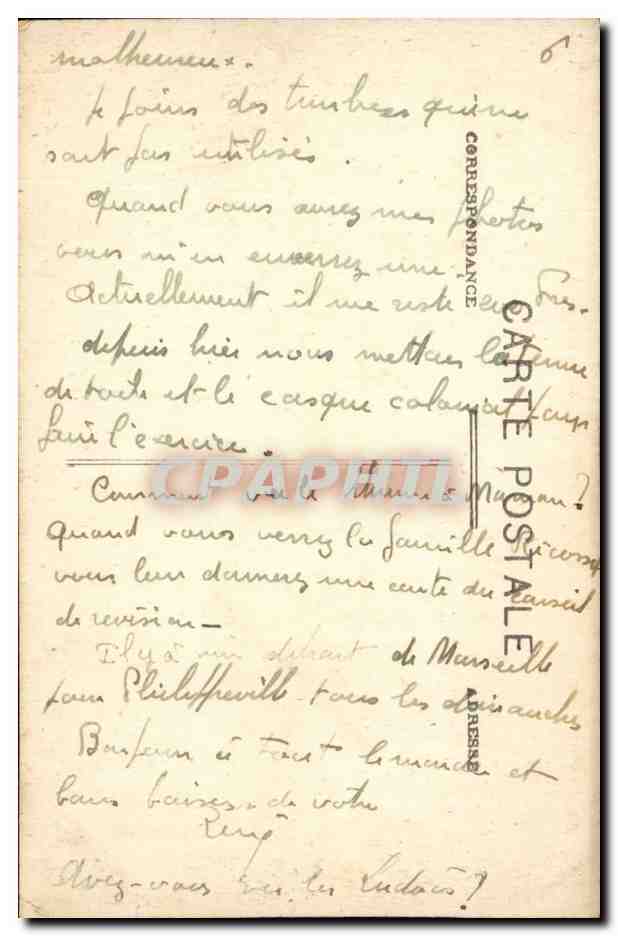 6
malheureux.
Je joins des timbres qui ne
sont pas utilisés.
Quand vous aurez mes photos
vous m'en enverrez une.
Actuellement il me reste
depuis hier nous mettons la tenue
de toile et le casque colonial pour
faire l'exercice.
Comment va le à Maman?
Quand vous verrez la famille
vous leur donnerez une carte du conseil
de revision_
Il y à un départ de Marseille
pour Philippeville tous les dimanches
Bonjour à tout le monde et
bons baisers de votre
René
Avez-vous les ?
CORRESPONDANCE
CARTE POSTALE
ADRESSE
CPAPHIL